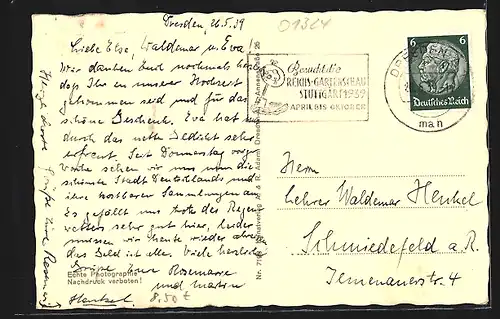 Dresden, 26.5.39
Liebe Else, Waldemar u. Eva
Wir danken Euch nochmals herzl.
daß Ihr zu unserer Hochzeit
gekommen seid und für das
schöne Geschenk. Eva hat uns
durch das nette Gedicht sehr
erfreut. Seit Donnerstag vor
Woche sehen wir uns nun die
schönste Stadt Deutschlands und
ihre kostbaren Sammlungen an.
Es gefällt uns trotz des Regen
wetters sehr gut hier, leider
müssen wir heute wieder
das Geld ist alle. Viele herzliche
Grüße Eure Rosemarie
und Martin
Echte Photographie
Nachdruck verboten!
Henkel
8.50 €
01364
Besucht die
REICHS-GARTENSCHAU
STUTTGART 1939
APRIL BIS OKTOBER
DRESDEN
6 6
Deutsches Reich
man
Herrn
Lehrer Waldemar Henkel
Schmiedefeld a. R.
Ilmenauerstr. 46